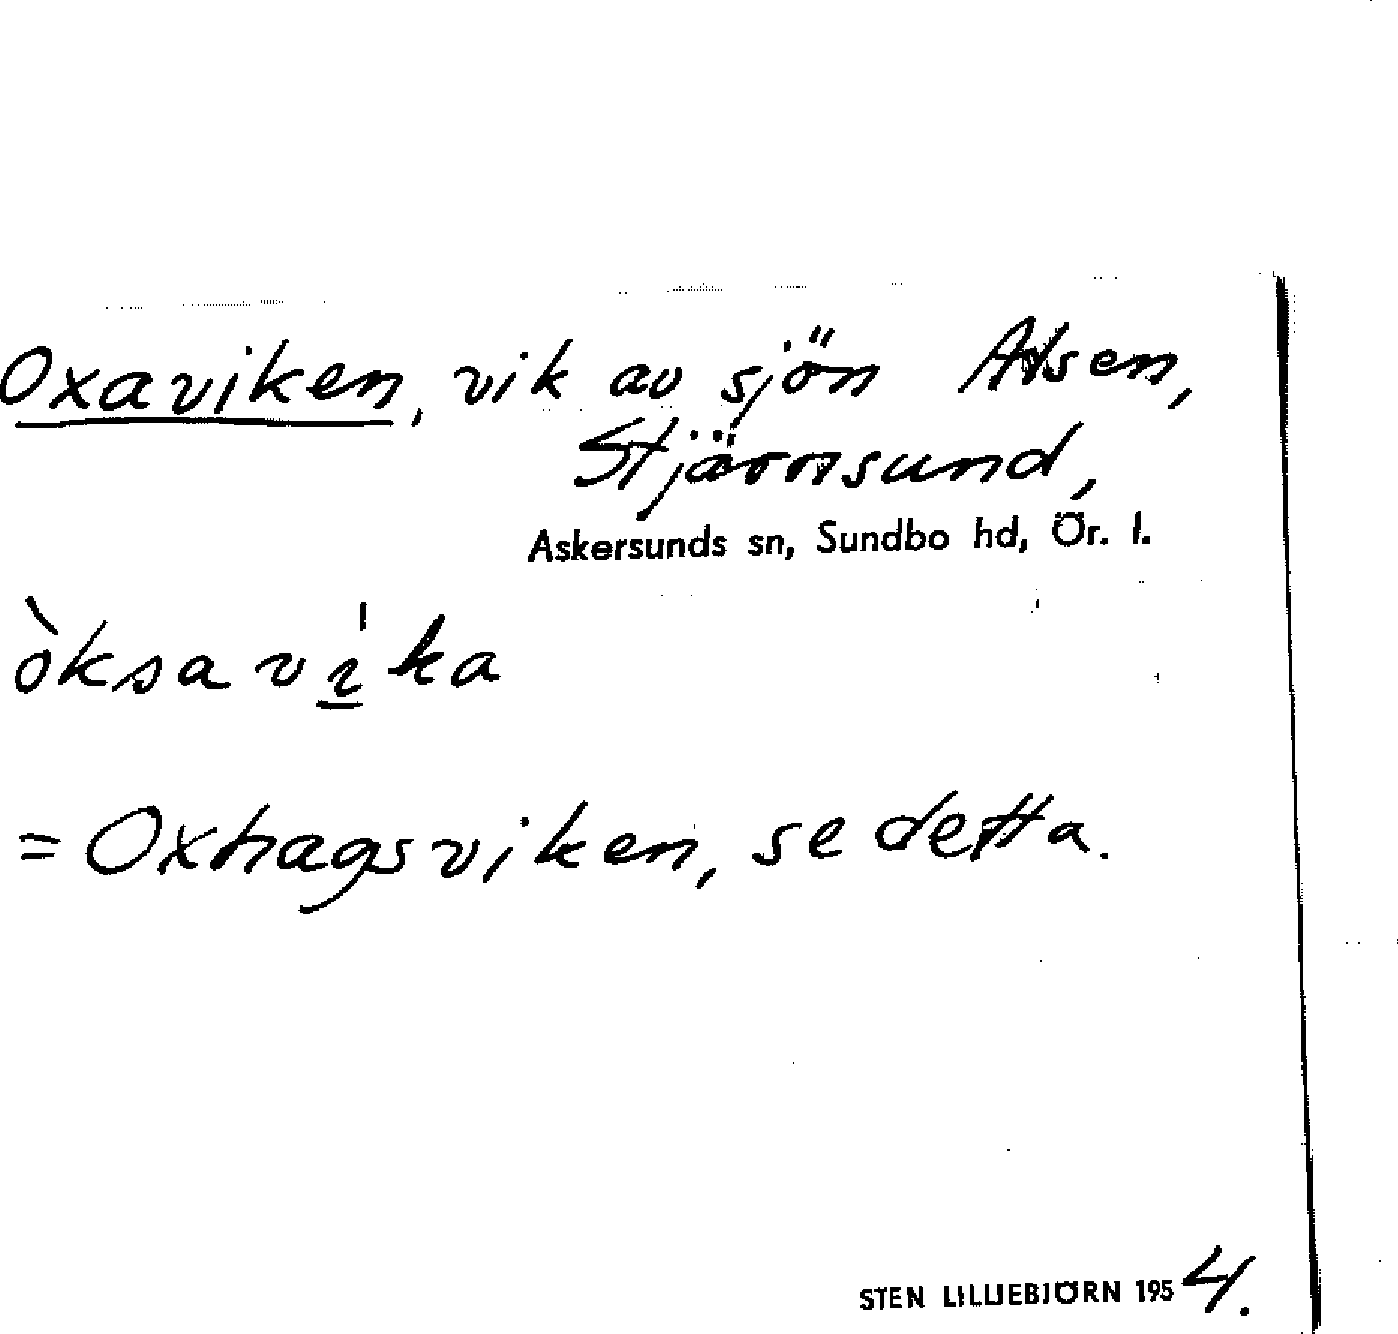 Oxaviken, vik av sjön Alsen,
Stjärnsund,
Askersunds sn, Sundbo hd, Ör. l.
òksavi̲̍ka
= Oxhagsviken, se detta.
STEN LILLIEBJÖRN 1954.